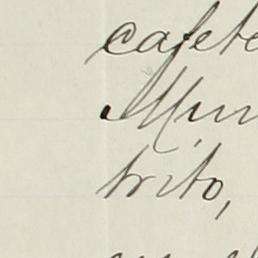 cafete
Mun
trito,